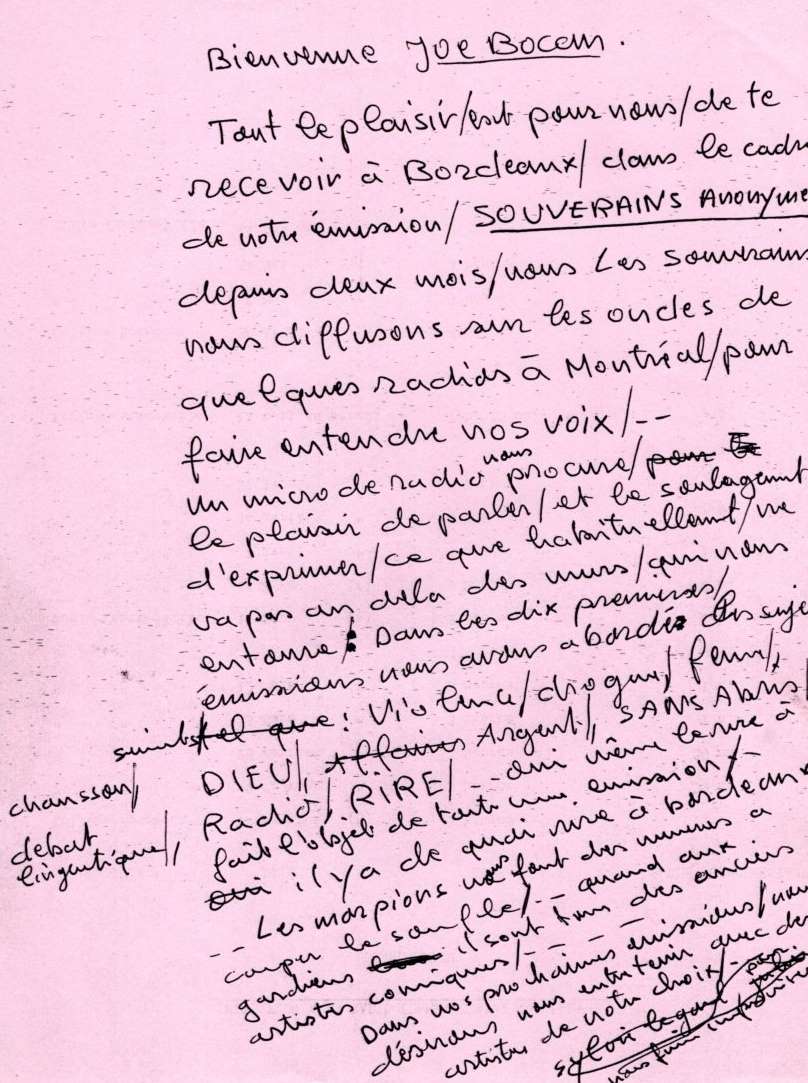 Bienvenue Joe Bocan.
Tout le plaisir/est pour nous/de te
recevoir à Bordeaux/dans le cadr
de notre émission/SOUVERAINS Anonyme
depuis deux mois/nous Les souverains
nous diffusons sur les ondes de
quelques radios à Montréal/pour
faire entendre nos voix/--
un micro de radio nous procure/pour
le plaisir de parler/et le soulagement
d'exprimer/ce que habituellement/ne
va pas au dela des murs/qui nous
entoure/: Dans les dix premières/
émissions nous avons abordé des suje
suivants/tel que: Violence/drogue/femme/,
DIEU/, affaires Argent/, SANS Abris/
chansson/
Radio/, RIRE/-- oui même le rire à
debat
lingeutique/,
fait l'objet de toute une emission/--
oui il y a de quoi rire à bordeaux
-- Les morpions nous font des numeros a
couper le souffle/-- quand aux
gardiens ils sont tous des anciens
artistes comiques/- - - -
Dans nos prochaines émissions/nous
désirons nous entretenir avec des
artistes de notre choix/--